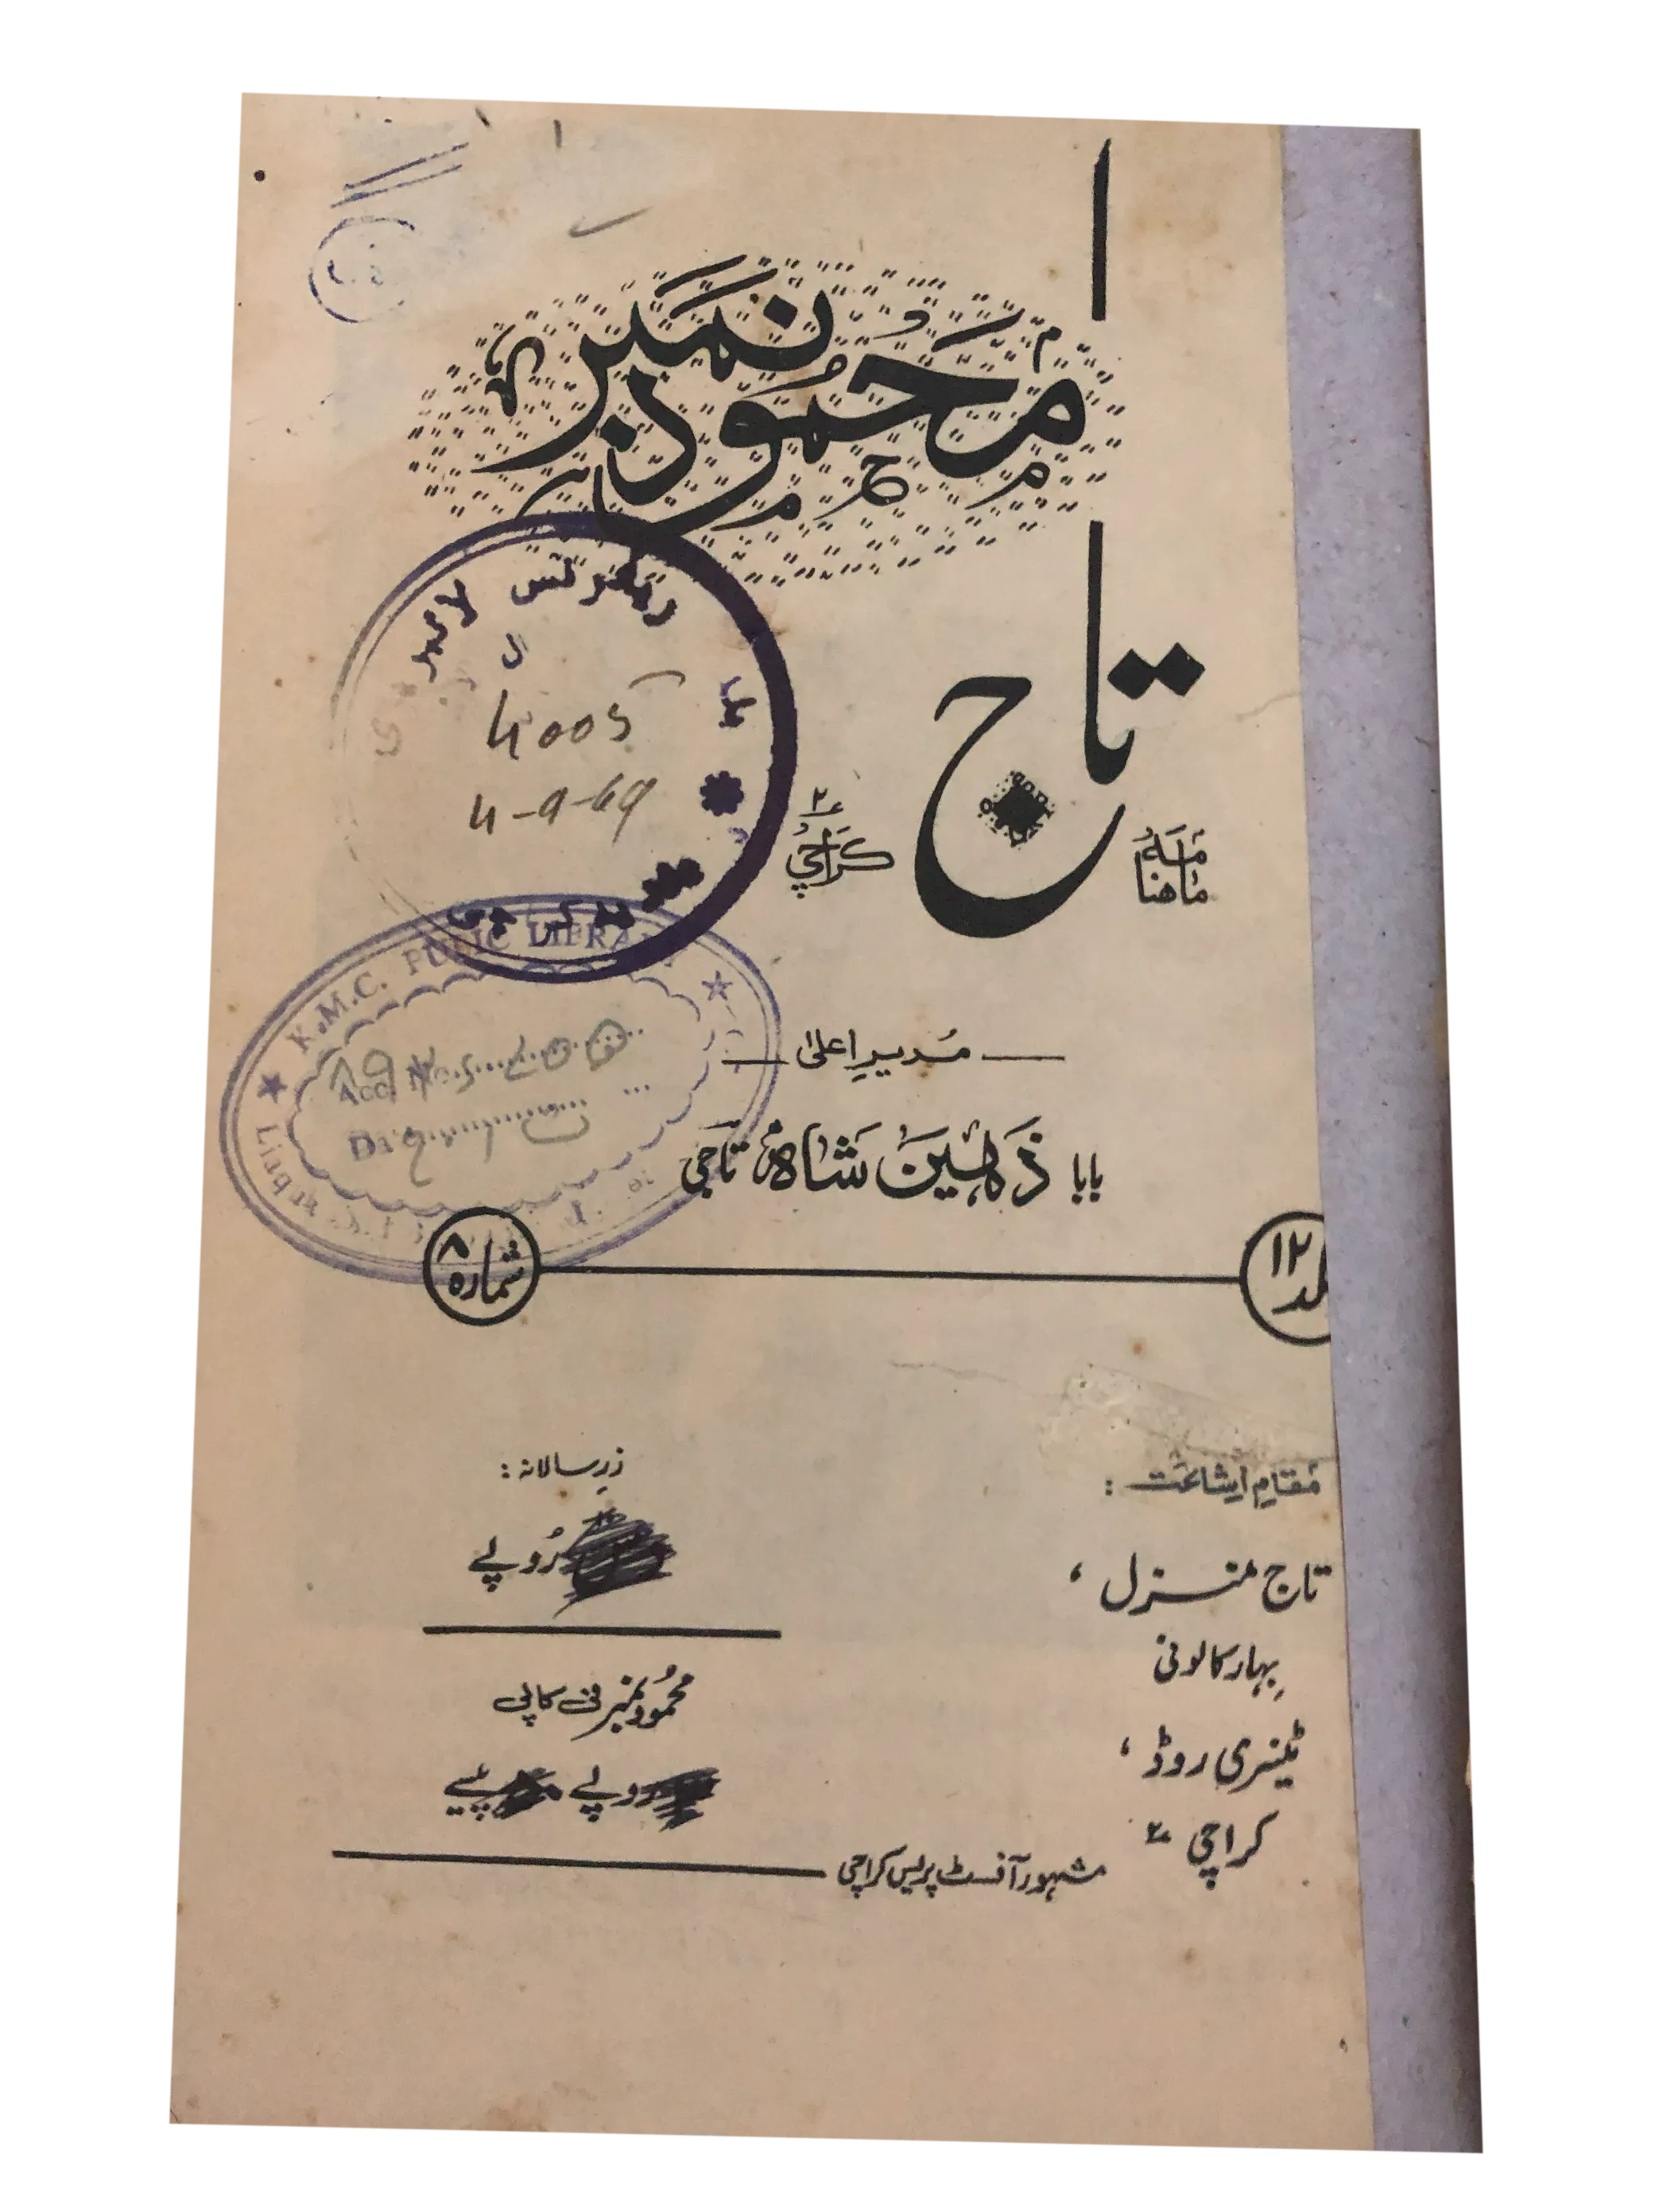 محمود نمبر
ماہنامہ تاج کراچی ۲
مدیرِ اعلیٰ
بابا ذہین شاہ تاجی
۱۲
شمارہ ۸
مقامِ اشاعت :
تاج منزل ،
بہار کالونی
ٹینری روڈ ،
کراچی ۲
زرِ سالانہ :
روپے
محمود نمبر فی کاپی
روپے پیسے
مشہور آفسٹ پریس کراچی
ریفرنس
4005
4-9-69
K.M.C. PUBLIC LIBRARY
Acc. No.